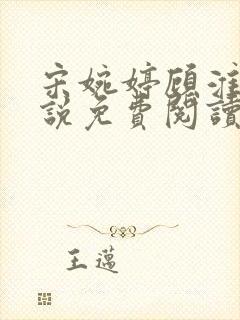 宋婉婷顾淮
說免費閱讀
王邁